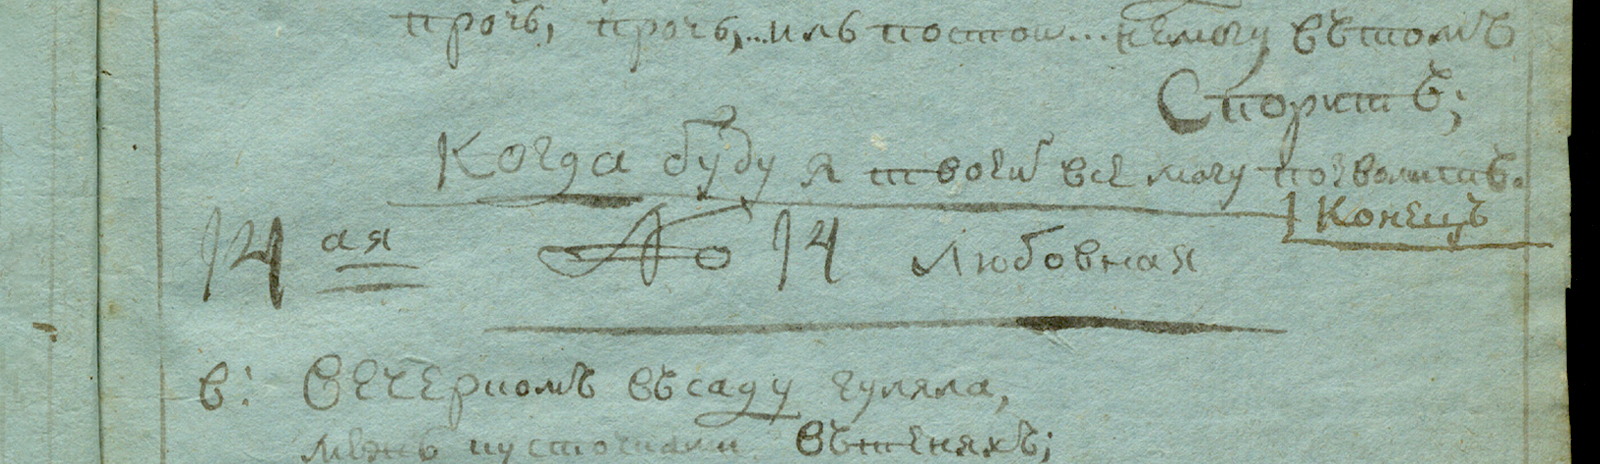 прочь, прочь,...иль постои...немогу вътомъ
Споритъ;
Когда буду я твоеи все могу позволитъ.
Конецъ
14 ая № 14 Любовная
в: Вечерномъ въсаду гуляла,
межъ кусточками вътеняхъ;